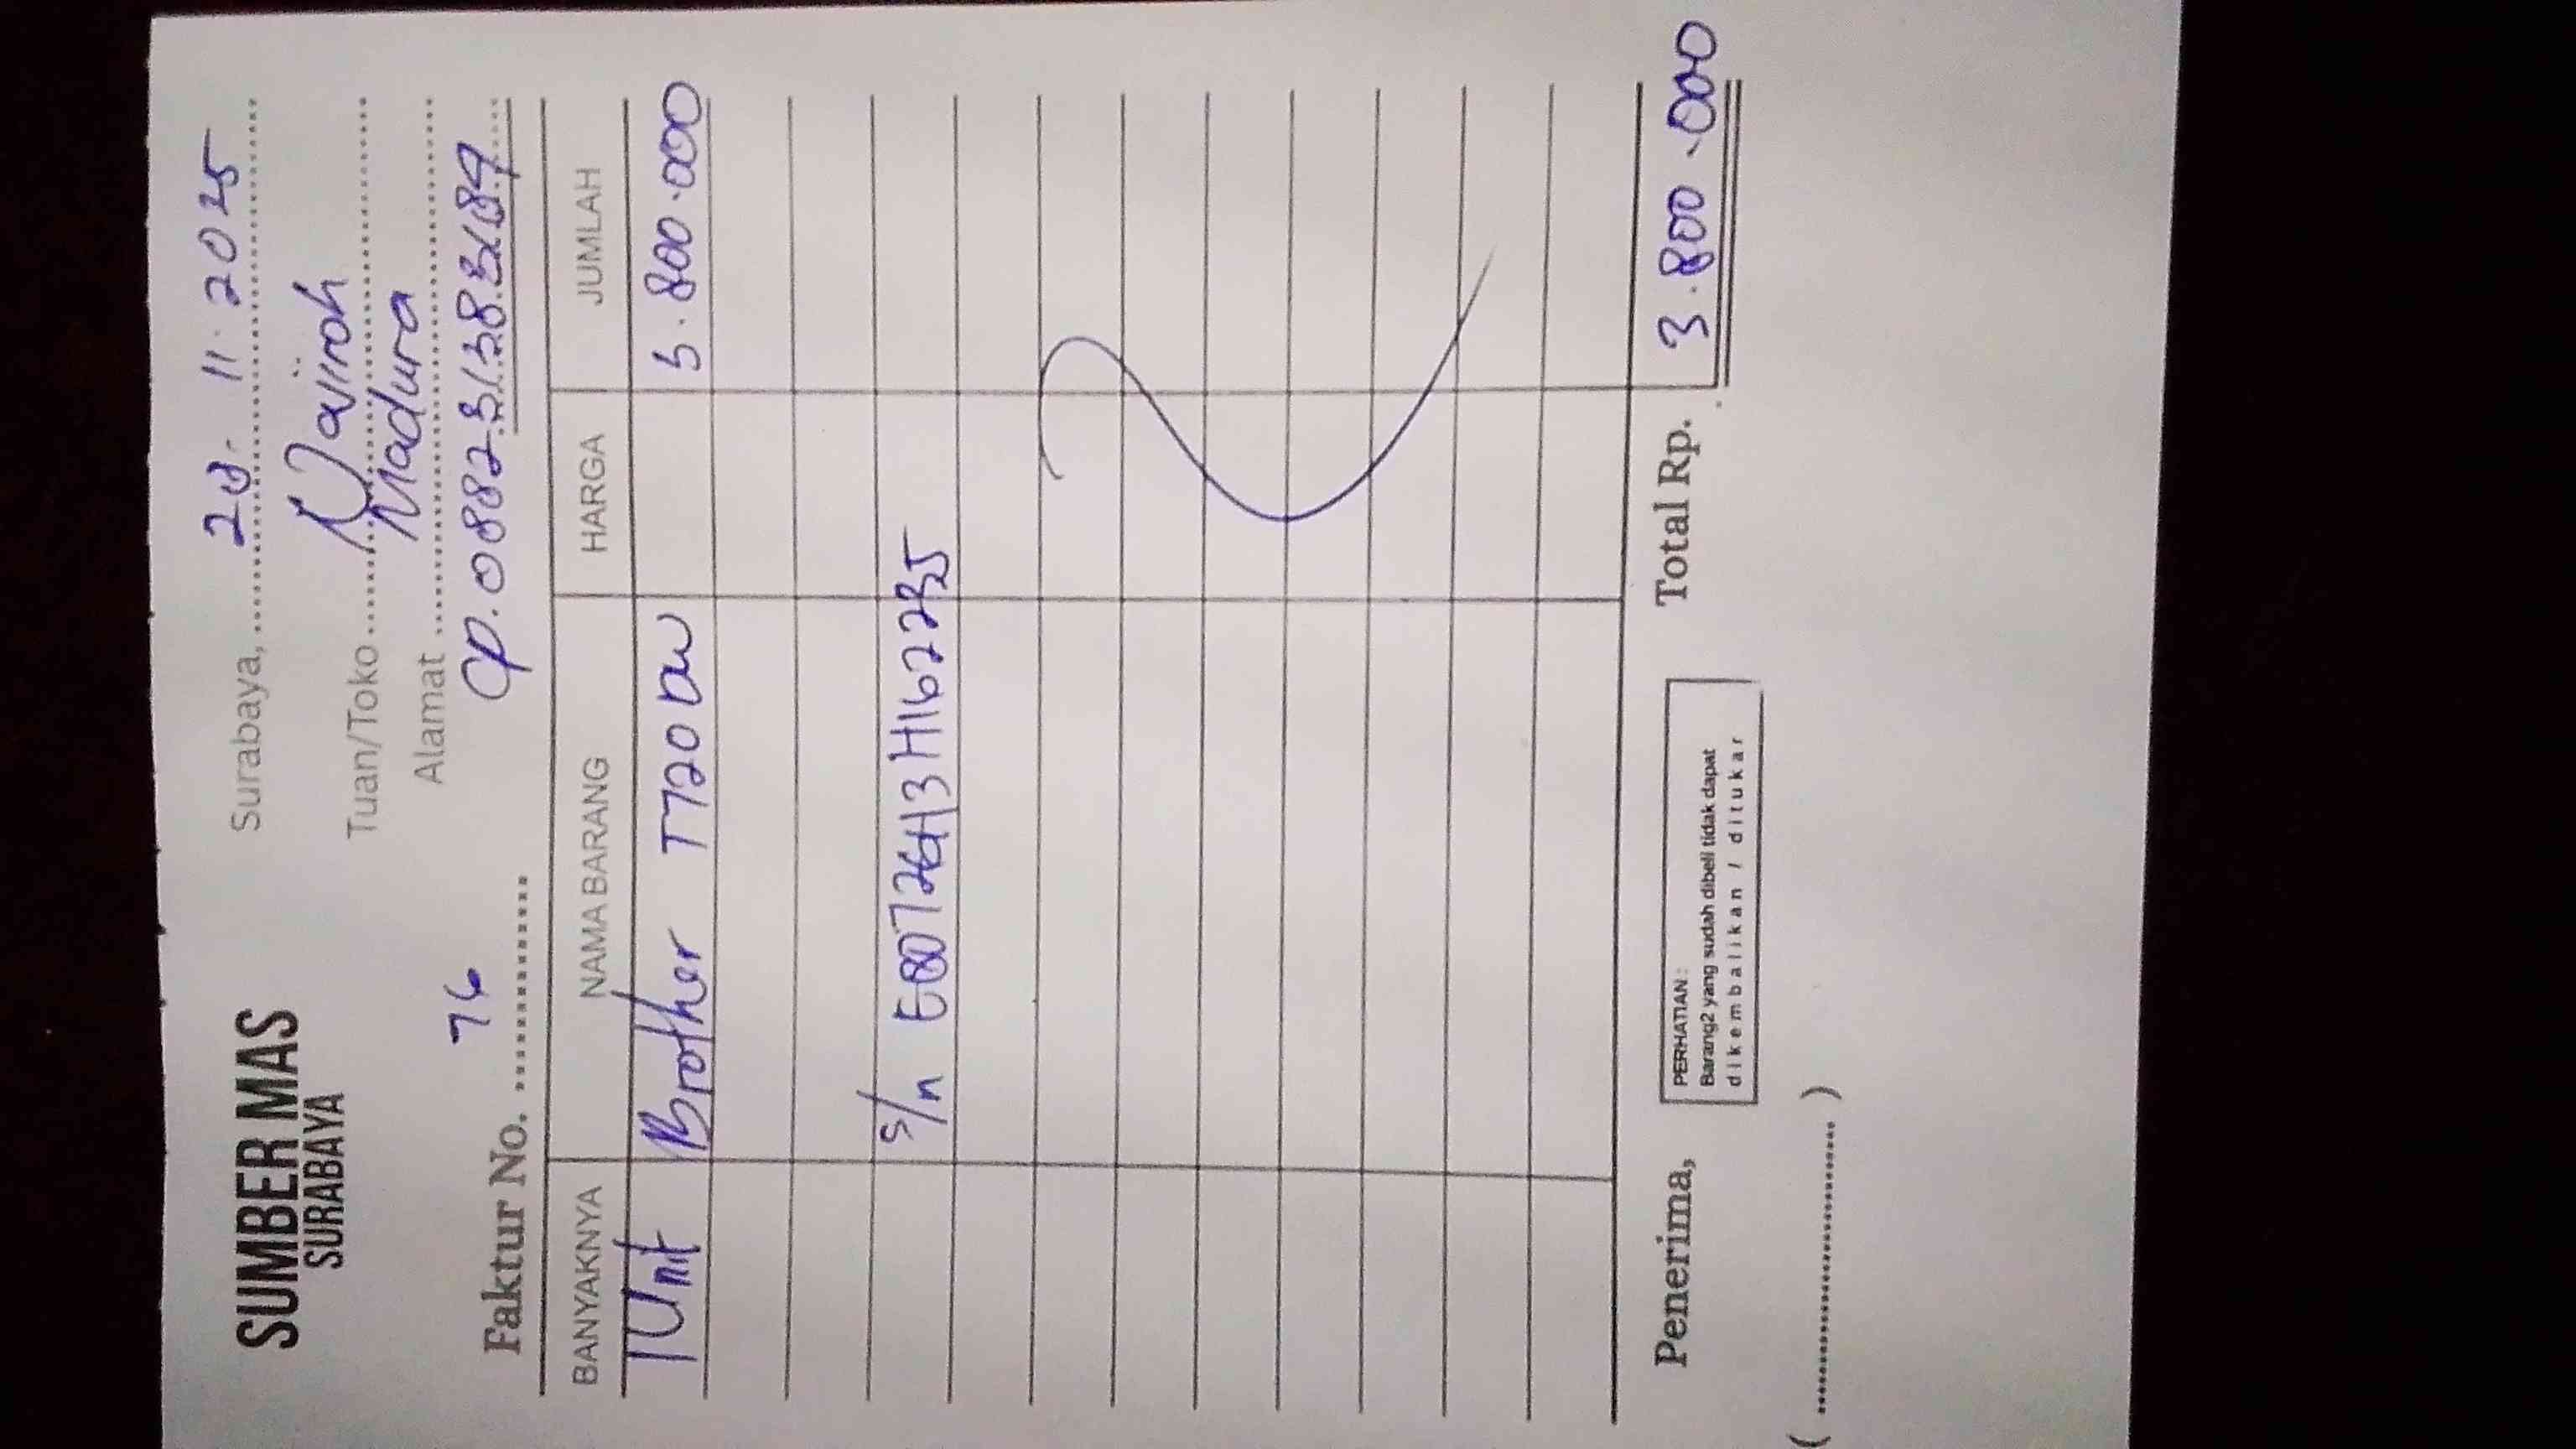 SUMBER MAS
SURABAYA
Surabaya, 11 · 2025
Tuan/Toko
Alamat Madura
Faktur No. 76
BANYAKNYA NAMA BARANG HARGA JUMLAH
1 Unit Brother T720 DW 3.800.000
s/n
Penerima,
PERHATIAN :
Barang2 yang sudah dibeli tidak dapat
dikembalikan / ditukar
Total Rp. 3.800.000
( )